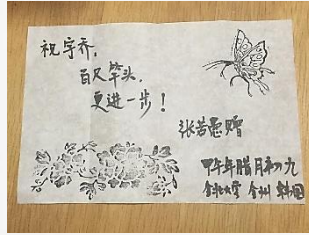 祝宇乔，
百尺竿头，
更进一步！
张若愚赠
甲午年腊月初九
全北大学 全州 韩国